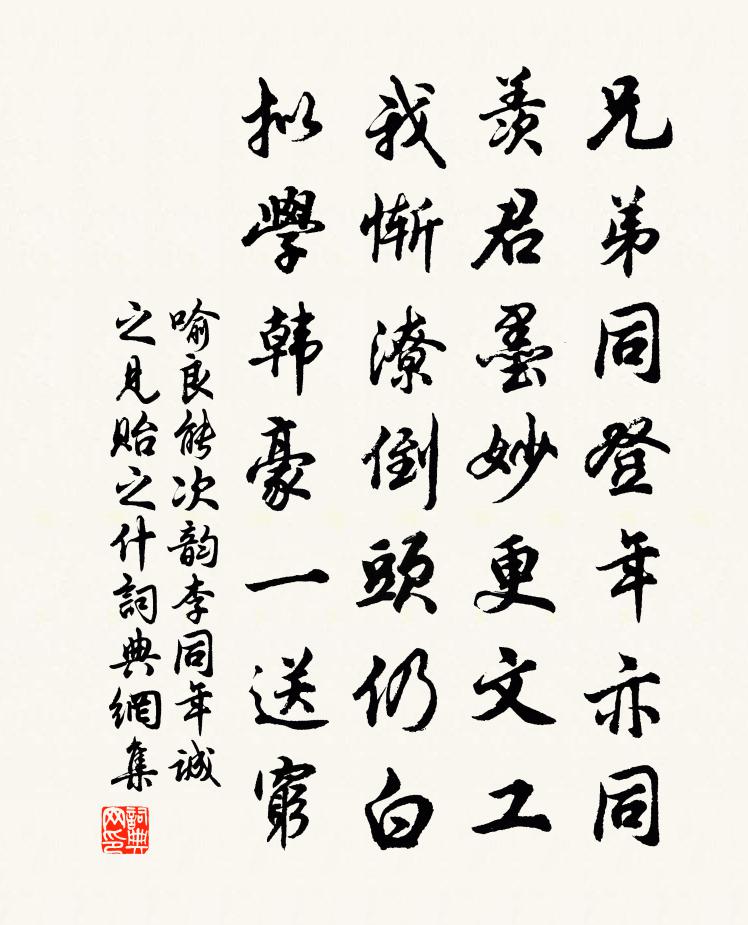 兄弟同登年亦同
羨君墨妙更文工
我慚潦倒頭仍白
拟學韩豪一送窮
喻良能次韵李同年诚
之見贻之什詞典網集
詞典
网印